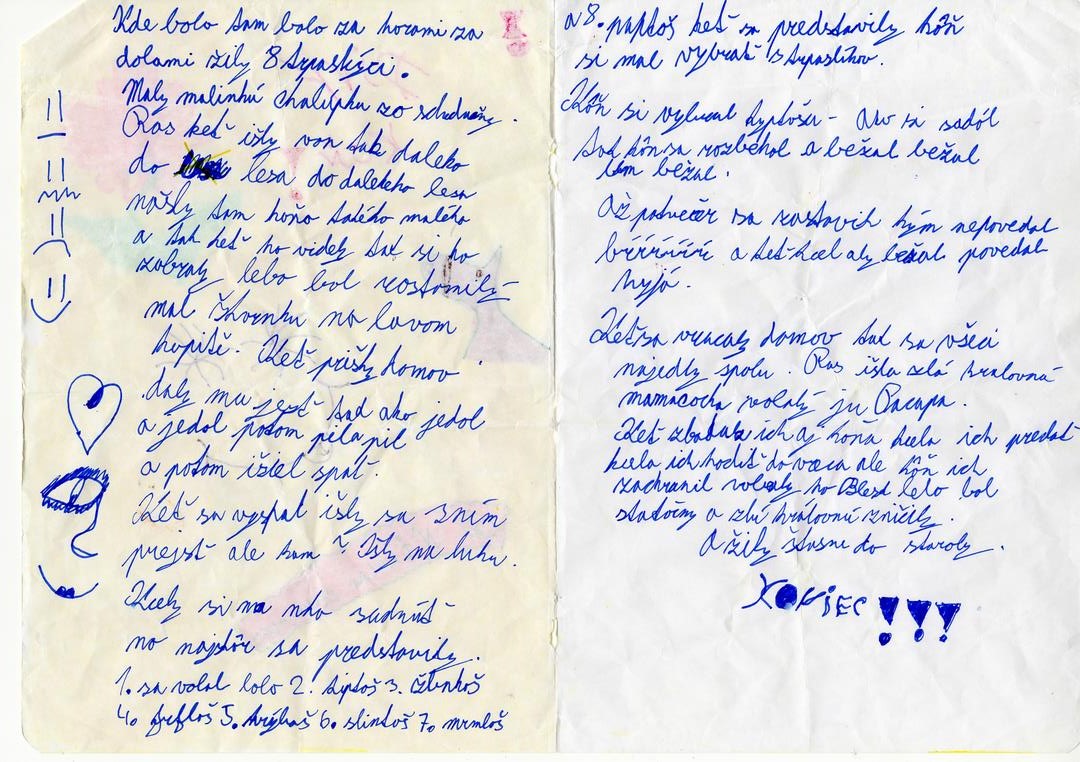 Kde bolo tam bolo za horami za
dolami žily 8 trpaslýci.
Maly malinkú chalúpku zo studničky.
Ras keť išly von tak daleko
do lesa do dalekeho lesa
našly tam koňa takého malého
a tak keť ho videly tak si ho
zobraly lebo bol rostomilý
mal škvrnku na lavom
kopitě. Keť prišly domov
daly mu jesť tad ako jedol
a jedol potom pila pil
a potom išiel spať.
Keť sa vyspal išly sa sním
prejsť ale kam? Išly na luku.
Kcely si na nho sadnúť
no najskôr sa predstavily.
1. sa volal lolo 2. tiptoš 3.
4. 5. 6. slintoš 7. mrmloš
a 8. paptoš keť sa predstavily kôň
si mal vybrať s trpaslíkov.
Kôň si vybral tiptoša - Ako si sadól
tak kôň sa rozbehol a bežal bežal
len bežal.
Až potvečer sa zastavil kým nepovedal
bŕŕŕŕŕŕ a keť kcel aby bežal povedal
hyjó.
Keť sa vracaly domov tak sa všeci
najedly spolu. Ras išla zlá kralovná
mamacocha volalý ju Pacapa.
Keť zbadala ich aj koňa kcela ich predať
kcela ich hodiť do vreca ale kôň ich
zachranil volaly ho Blesk lebo bol
statočny a zlú královnú zničily.
A žily štasne do staroby.
KOŇIEC!!!